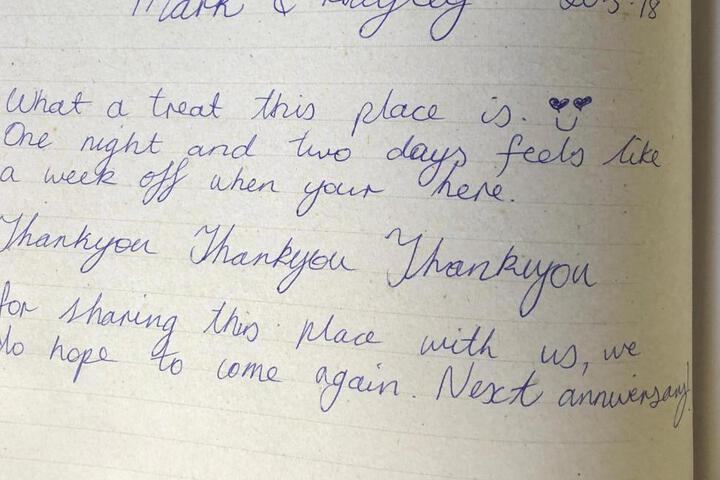 Mark & Hayley
What a treat this place is.
One night and two days feels like
a week off when your here.
Thankyou Thankyou Thankyou
for sharing this place with us, we
do hope to come again. Next anniversary!